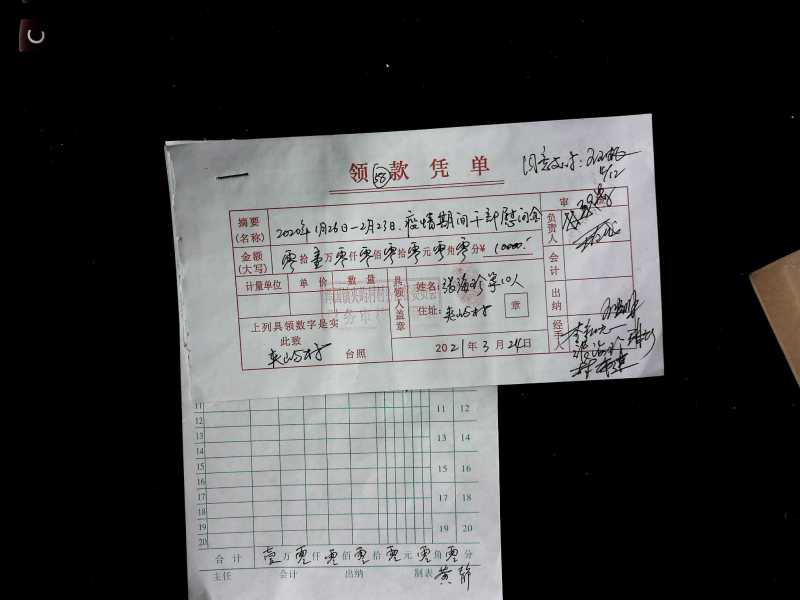 领款凭单
58
同意支付:
5/12
摘要(名称) 2020年1月26日-2月23日.疫情期间干部慰问金
金额(大写) 零拾壹万零仟零佰零拾零元零角零分¥ 10000.
计量单位 单价 数量 具领人盖章 姓名: 张海珍等10人
住址: 夹屿村 章
上列具领数字是实
此致
夹屿村 台照
2021年3月24日
审
负责人
会计
出纳
经手人
11 11 12
12
13 13 14
14
15 15 16
16
17 17 18
18
19 19 20
20
合计 壹万零仟零佰零拾零元零角零分
主任 会计 出纳 制表 黄静